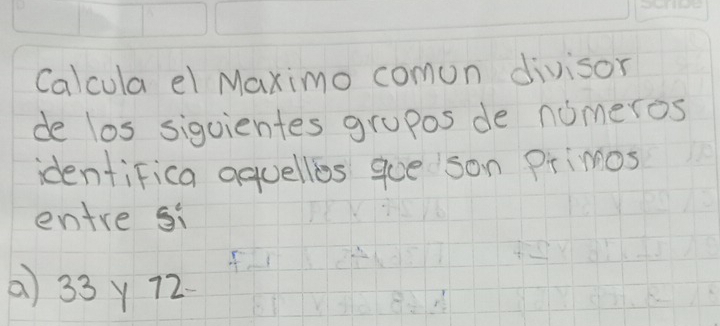 Scribe
Calcula el Maximo comun divisor
de los siguientes grupos de números
identifica aquellos que son Primos
entre si
a) 33 y 72-